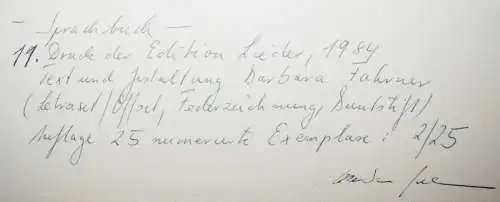 – Sprachbuch –
19. Druck der Edition Lieder, 1984
Text und Gestaltung Barbara Fahrner
(Letraset/Offset, Federzeichnung, Buntstift)
Auflage 25 numerierte Exemplare: 2/25